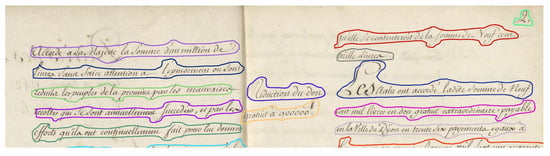 accordé a sa Majesté la somme d'un million de
livres sans faire attention a l'epuisement ou sont
reduits les peuples de la province par les mauvaises
recoltes qui se sont annuellement succedées, et par les
efforts qu'ils ont continuellement fait pour lui donner
Réduction du don
gratuit a 900000ᵗ
2.
qu'elle se contenteroit de la somme de Neuf cent
mille livres
Les Etats ont accordé ladite somme de Neuf
cent mil livres en don gratuit extraordinaire payable
en la Ville de Dijon en trente six payements egaux a